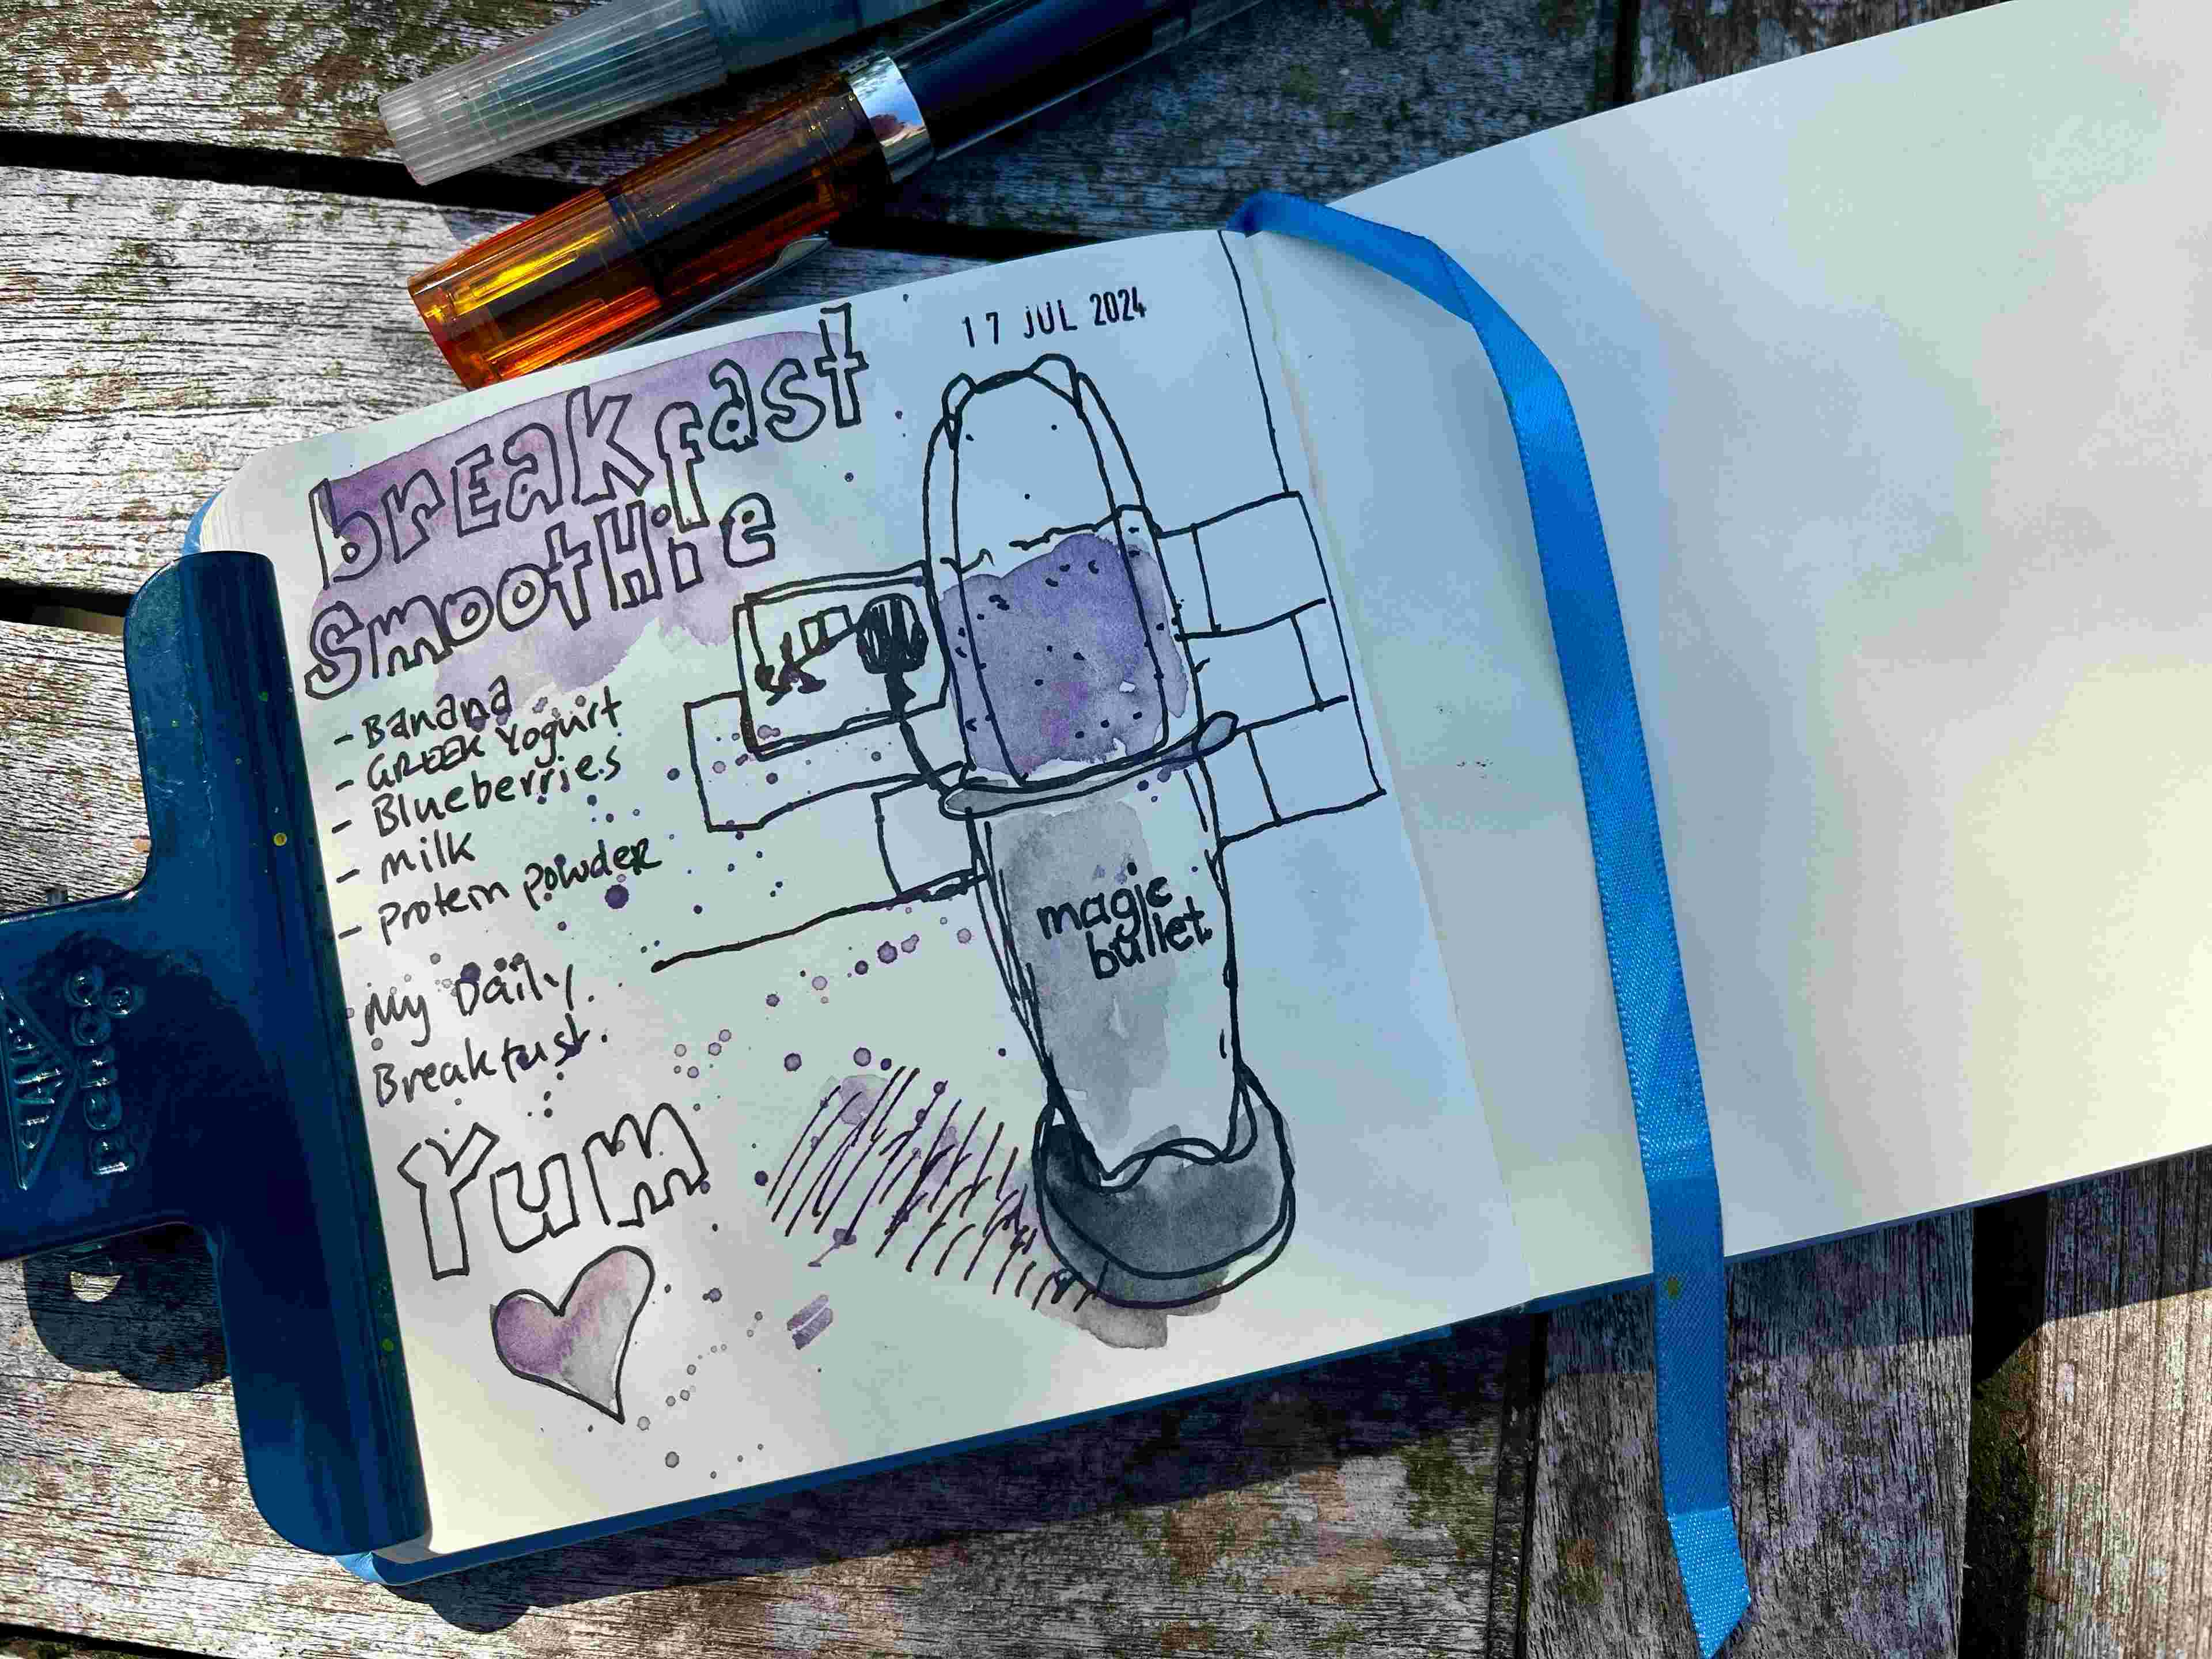 17 JUL 2024
breakfast
smootHie
- Banana
- GREEK Yogurt
- Blueberries
- milk
- protein powder
My Daily
Breakfast.
Yum
magic
bullet